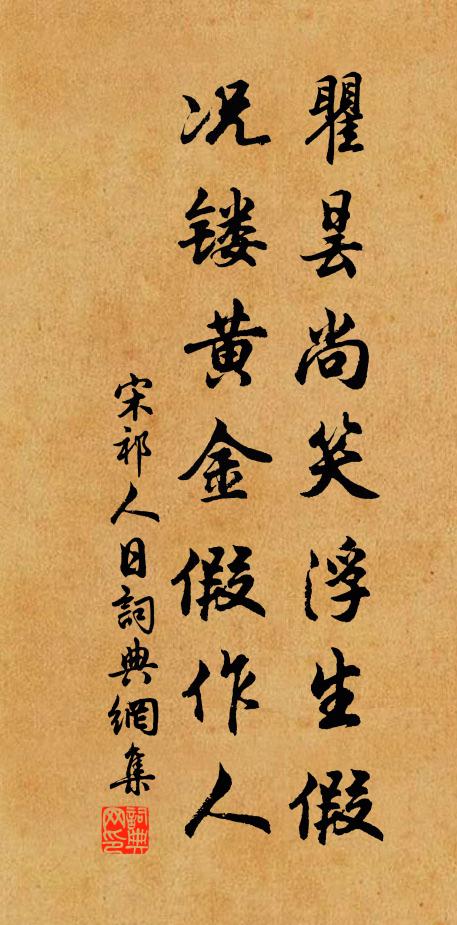 瞿昙尚笑浮生假
况镂黄金假作人
宋祁人日詞典網集
詞典網印